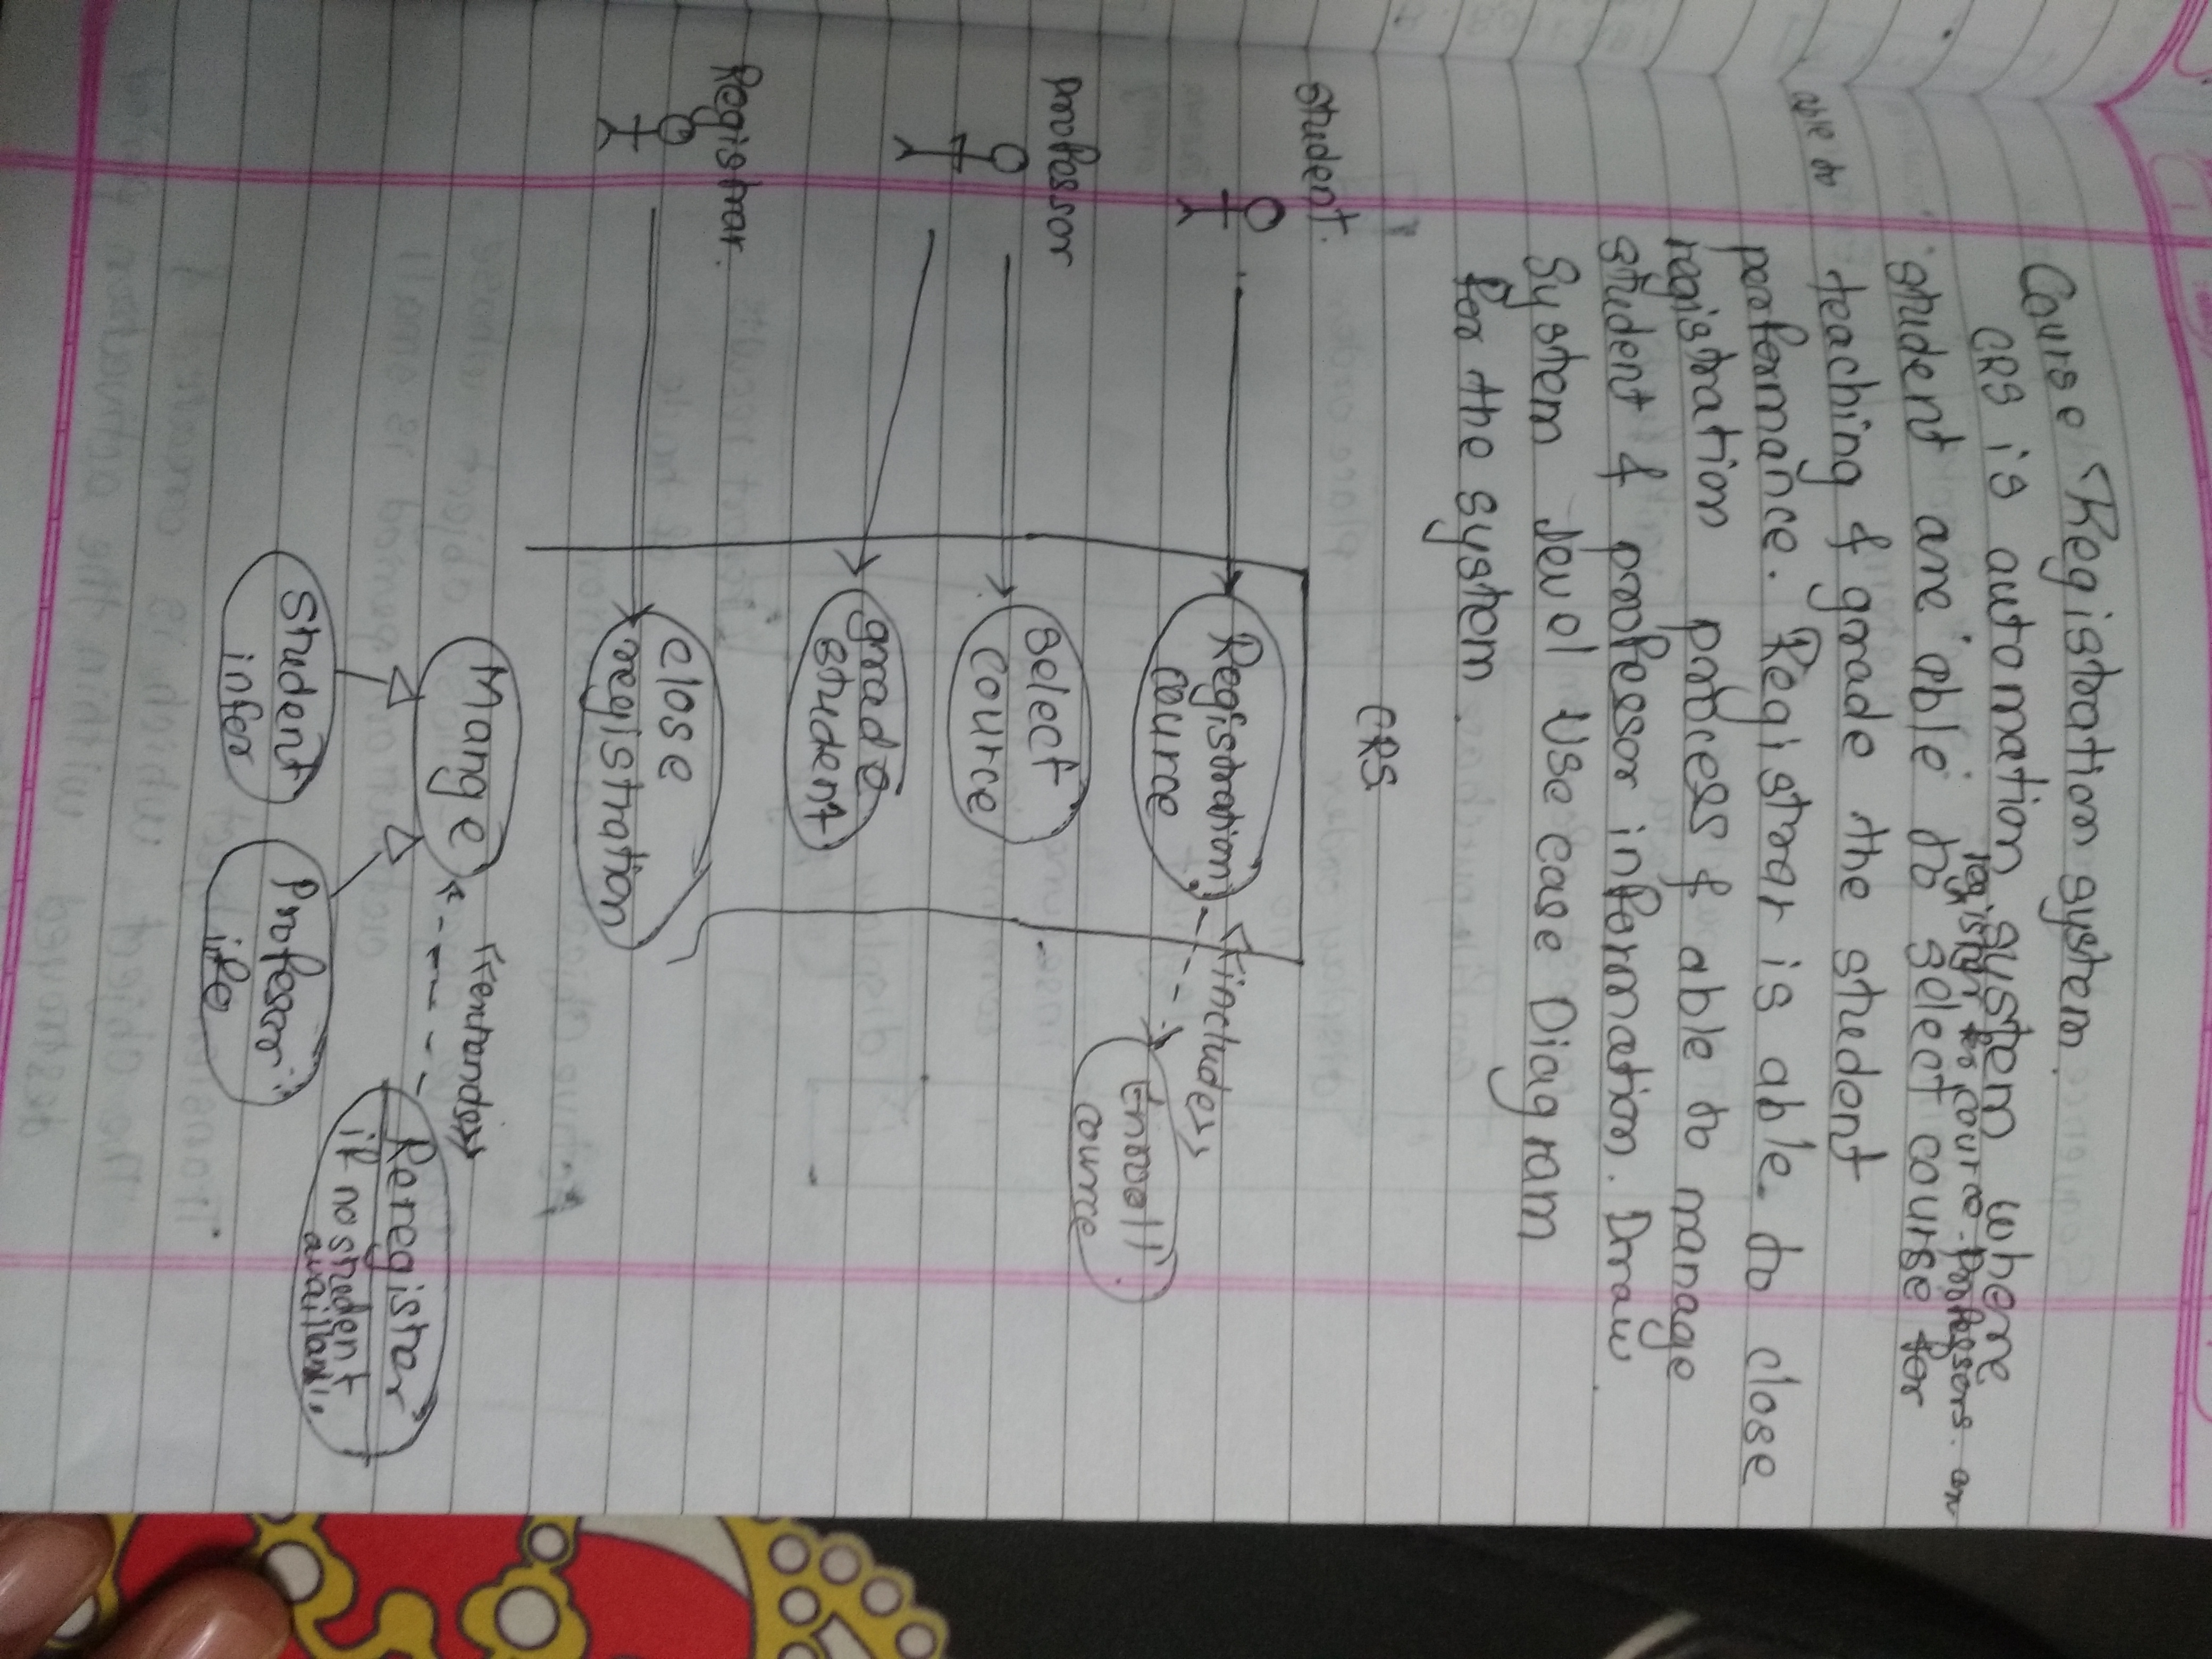 Course Registration system.
CRS is automation system where
register for cource. Professors. are
student are able to select course for
teaching & grade the student
able to
performance. Registrar is able to close
registration process & able to manage
student & professor information. Draw
System level Use case Diagram
for the system.
CRS.
Student.
Registration
cource
<<include>>
Enroll
cource
Professor
select
cource
grade
student
Registrar.
close
registration
Mange
<<extends>>
Reregister
if no student
Student
infor
Profesor
ifo